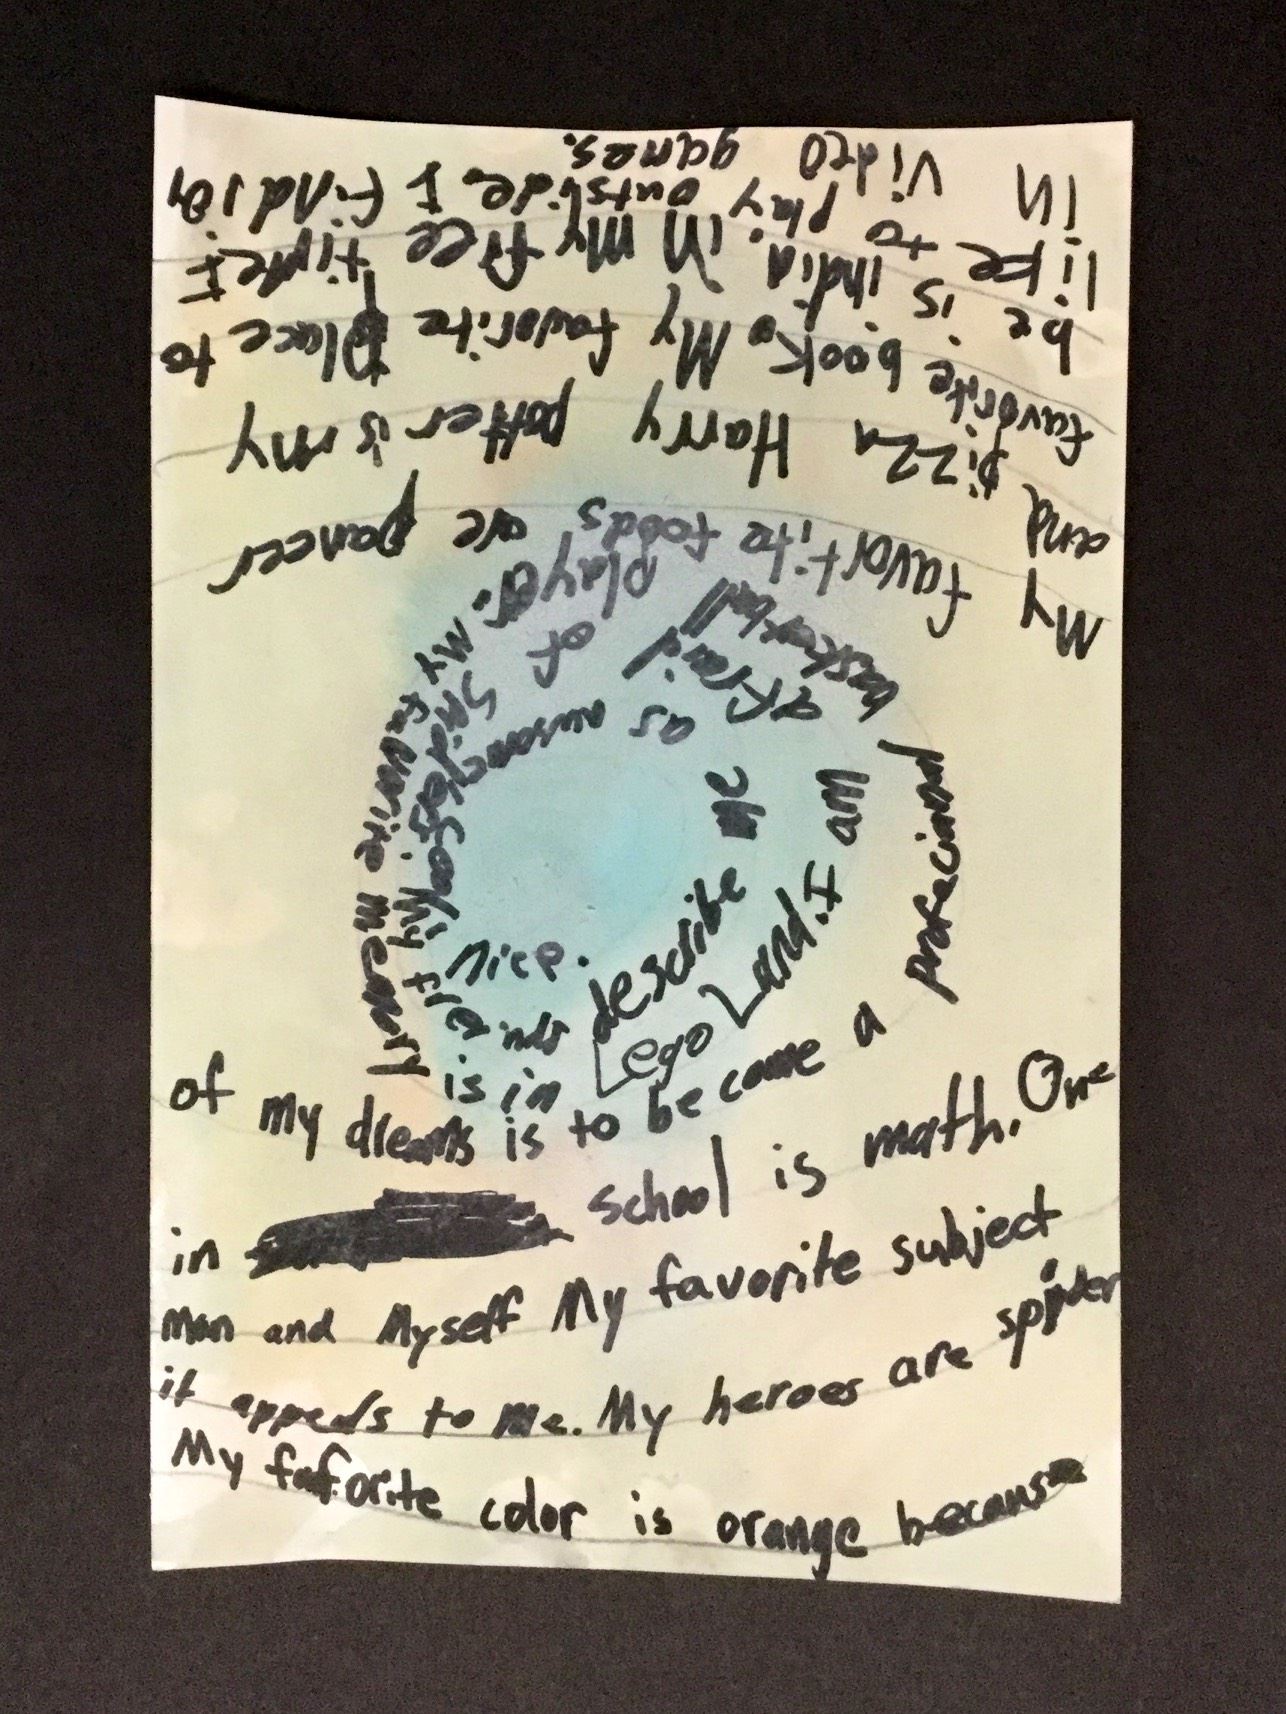 My faforite color is orange because
it appeals to me. My heroes are spider
man and Myself My favorite subject
in school is math. One
of my dreams is to become a
profecianal basketball player. My favorite memory
is in Lego Land. I am afraid of
My friends describe me as
nice.
My favortite foods are pancer
and pizza Harry potter is my
favorite book. My favorite place to
be is india. in my free time I
like to play outside. I find joy
in video games.